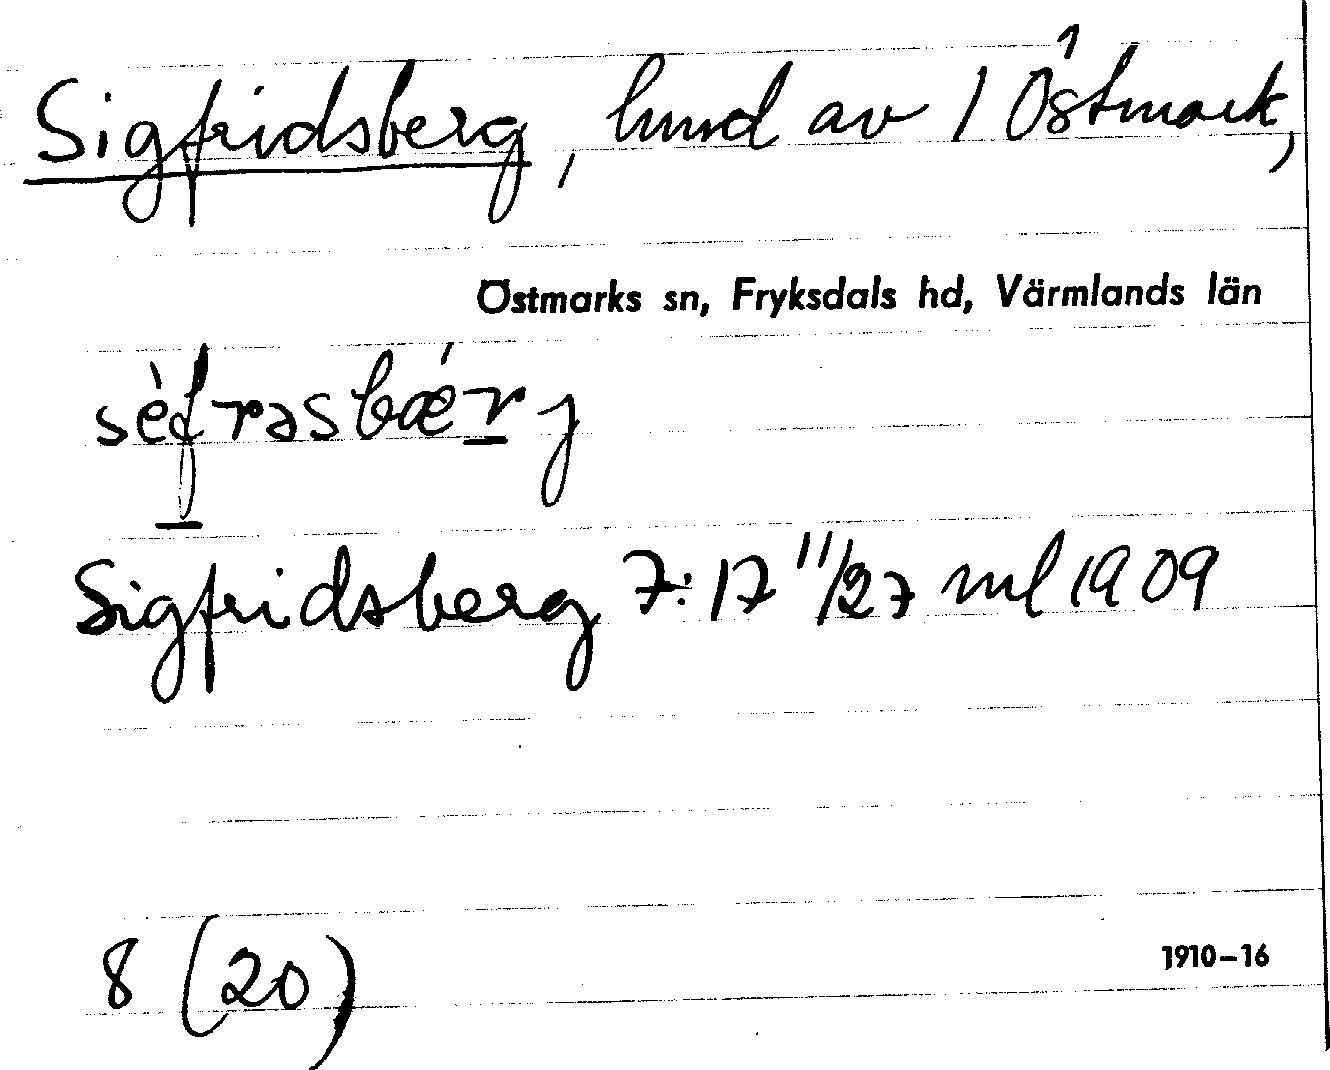 Sigfridsberg, lund av 1 Östmark,
Östmarks sn, Fryksdals hd, Värmlands län
sèfrəsbǽrj
Sigfridsberg 7:17 11/27 ml 1909
8 (20)
1910–16